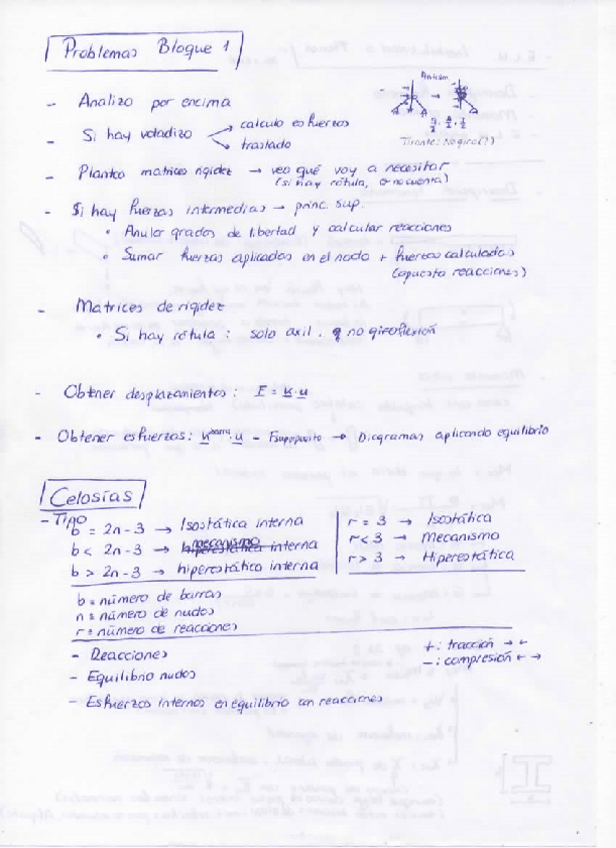 Problemas Bloque 1
- Analizo por encima
- Si hay voladizo → calculo esfuerzos
→ traslado
Tirante: No gira(?)
- Planteo matrices rigidez → veo qué voy a necesitar
(si hay rótula, no cuenta)
- Si hay fuerzas intermedias → princ. sup.
• Anular grados de libertad y calcular reacciones
• Sumar fuerzas aplicadas en el nodo + fuerzas calculadas
(opuesta reacciones)
- Matrices de rigidez
• Si hay rótula: solo axil. no giroflexión
- Obtener desplazamientos: F = K · u
- Obtener esfuerzos: K barra · u - F → Diagramas aplicando equilibrio
Celosías
- Tipo
b = 2n - 3 → Isostática interna
b < 2n - 3 → mecanismo interna
b > 2n - 3 → hiperestático interna
r = 3 → Isostática
r < 3 → mecanismo
r > 3 → Hiperestática
b = número de barras
n = número de nudos
r = número de reacciones
- Reacciones
- Equilibrio nudos
- Esfuerzos internos en equilibrio con reacciones
+ : tracción → ←
- : compresión ← →